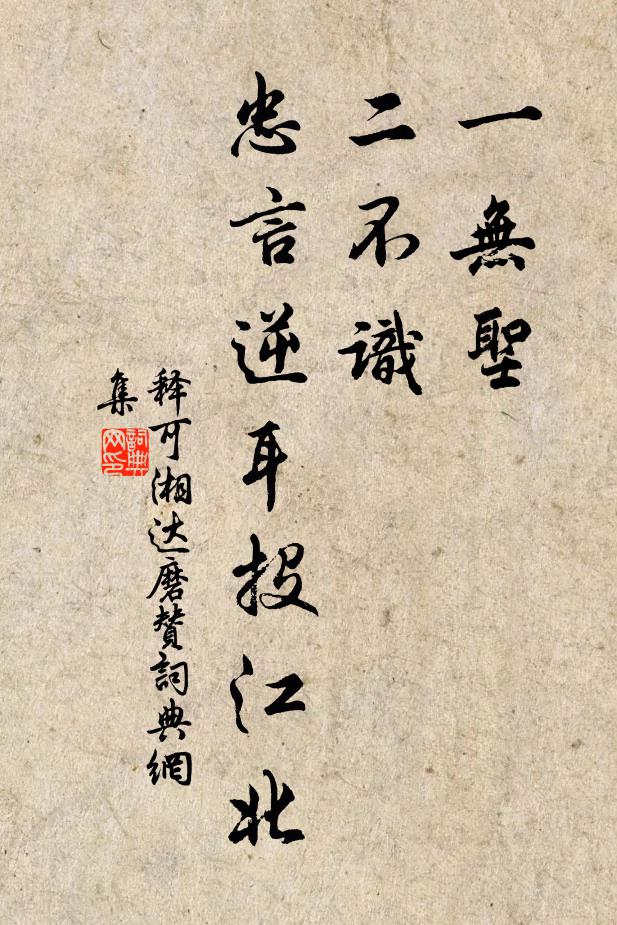 一無聖
二不識
忠言逆耳投江北
释可湘达磨贊詞典網
集
詞典网印